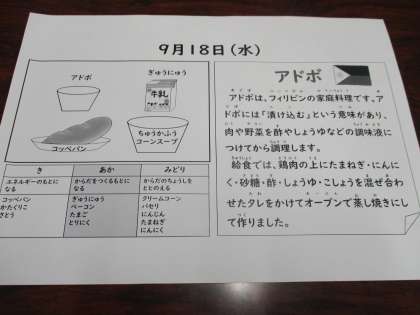 9月18日(水)
アドボ
ぎゅうにゅう
牛乳
コッペパン
ちゅうかふう
コーンスープ
き
あか
みどり
エネルギーのもとに
なる
からだをつくるもとに
なる
からだのちょうしを
ととのえる
コッペパン
かたくりこ
さとう
ぎゅうにゅう
ベーコン
たまご
とりにく
クリームコーン
パセリ
にんじん
たまねぎ
にんにく
アドボ
アドボは、フィリピンの家庭料理です。ア
ドボには「漬け込む」という意味があり、
肉や野菜を酢やしょうゆなどの調味液に
つけてから調理します。
給食では、鶏肉の上にたまねぎ・にんに
く・砂糖・酢・しょうゆ・こしょうを混ぜ合わ
せたタレをかけてオーブンで蒸し焼きにし
て作りました。